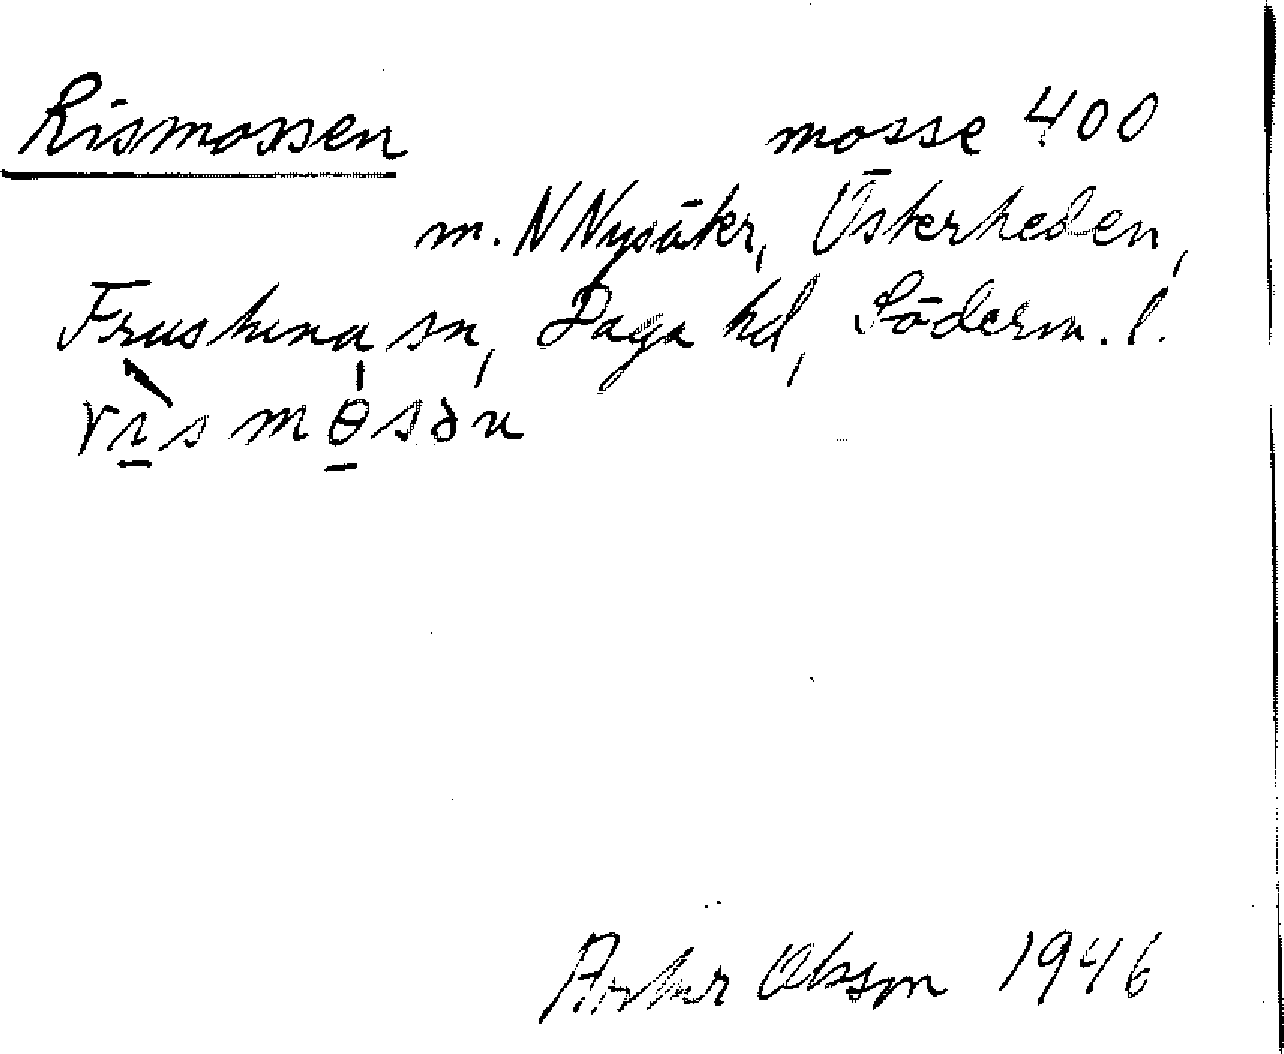 Rismossen mosse 400
m. N Nysäter, Österheden,
Frustuna sn, Daga hd, Söderm. l.
rɩsmɵsən
Artur Olsson 1946